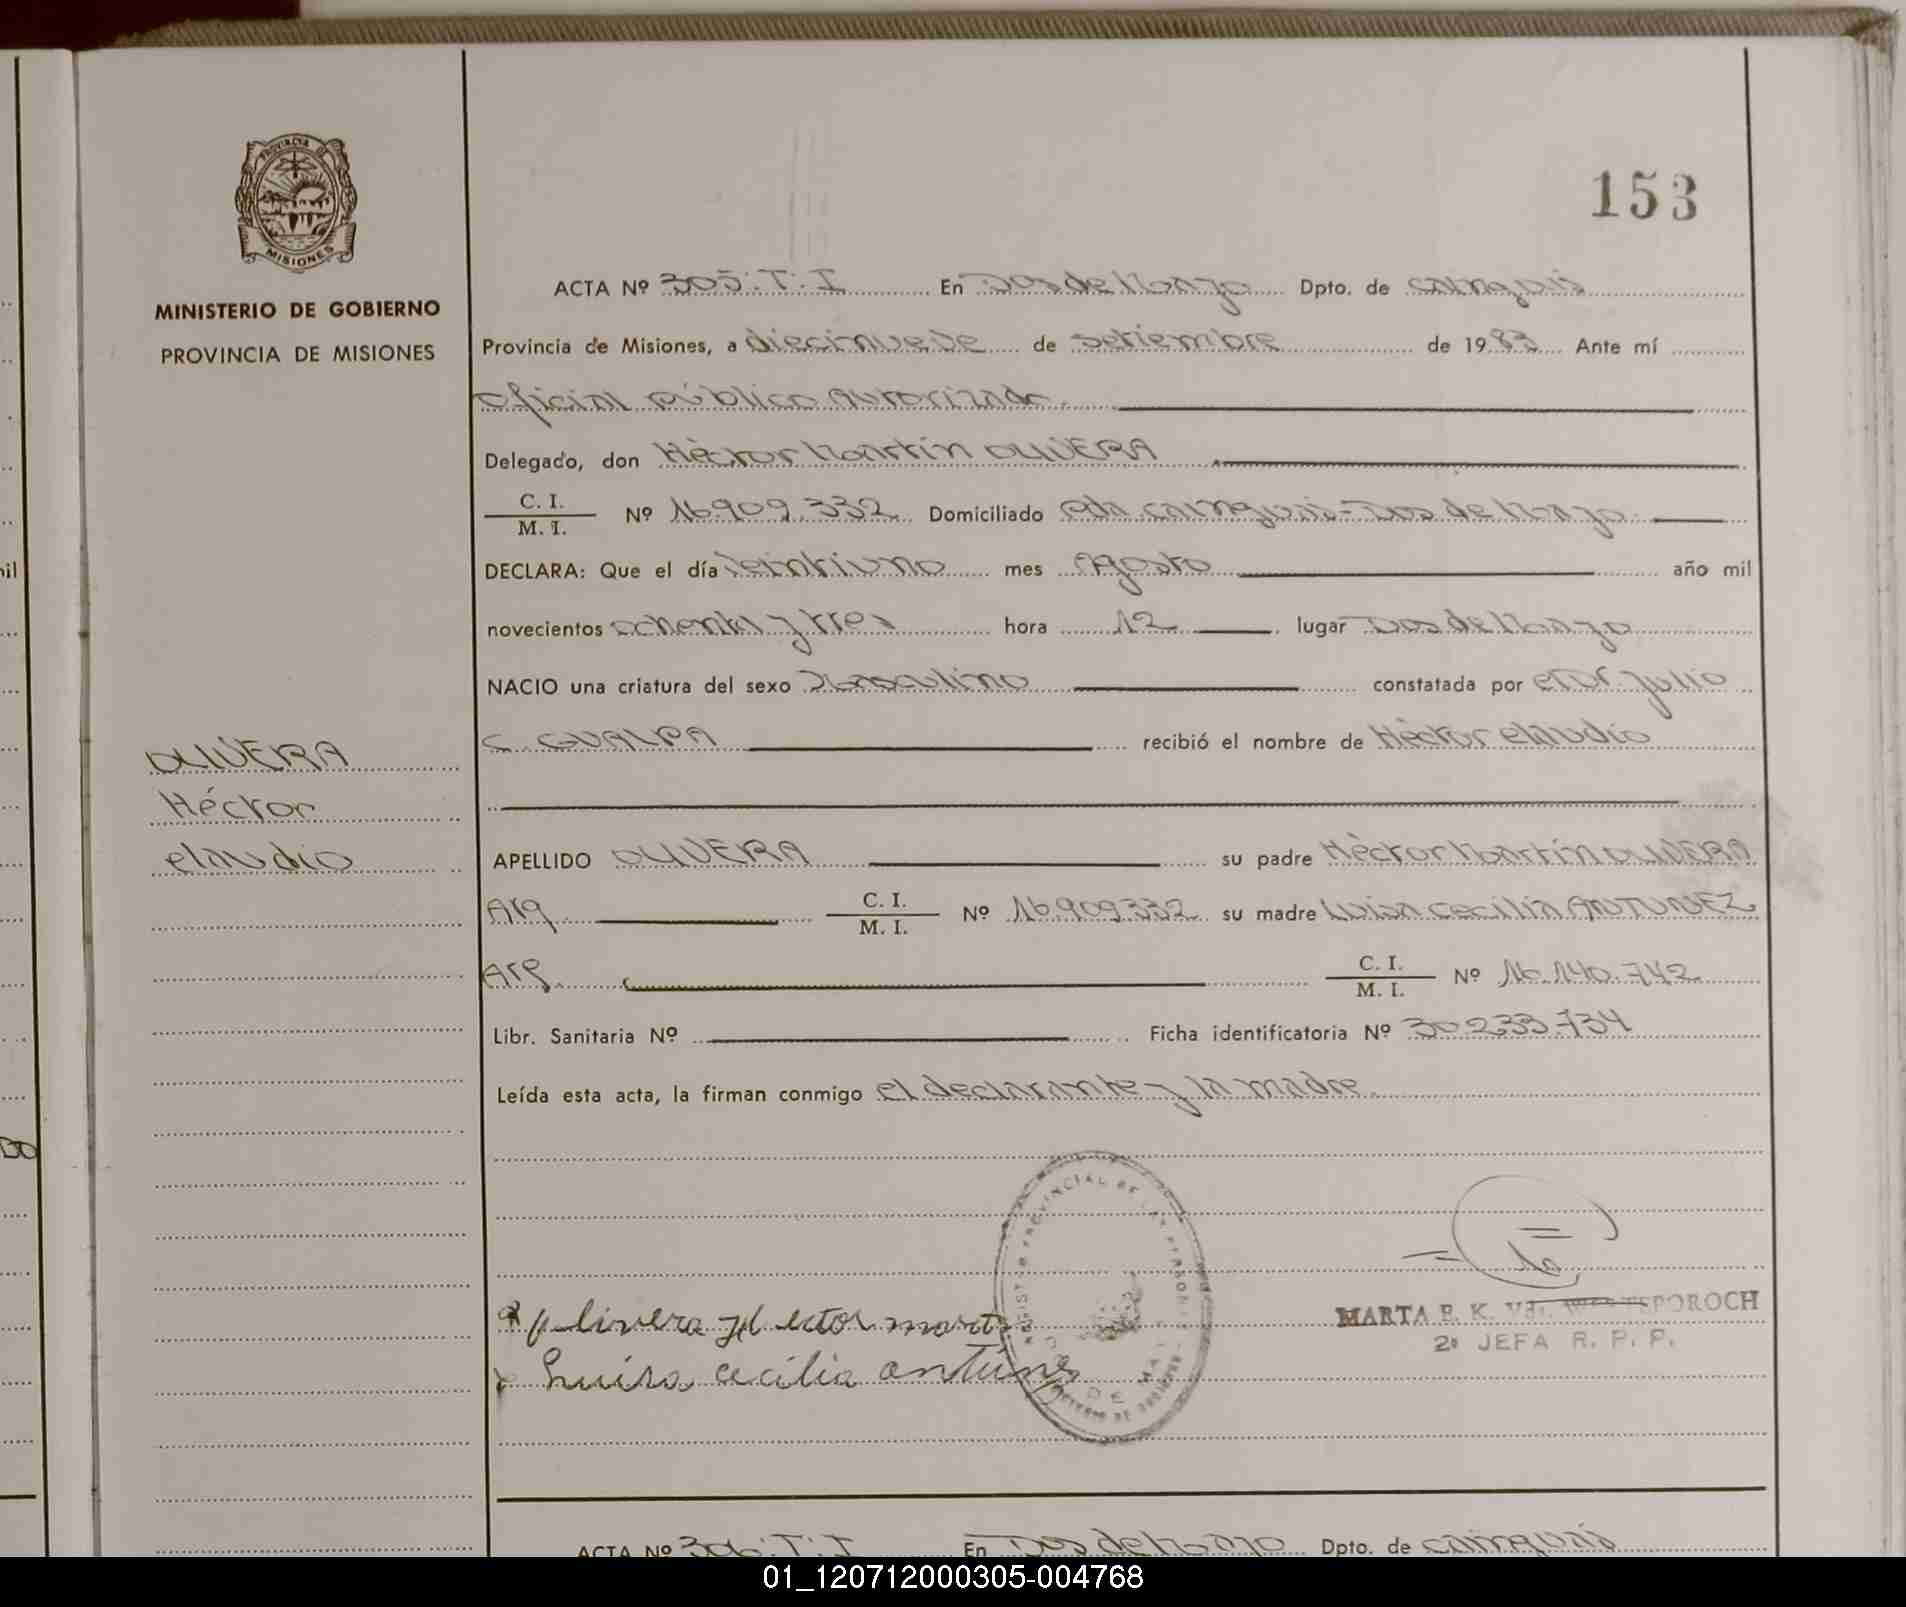 PROVINCIA DE
MISIONES
MINISTERIO DE GOBIERNO
PROVINCIA DE MISIONES
153
ACTA Nº 305.T.I En Dos de Mayo Dpto. de Cainguás
Provincia de Misiones, a diecinueve de setiembre de 1983 Ante mí
oficial público autorizado
Delegado, don Héctor Martín OLIVERA
C. I.
M. I. Nº 16.909.332 Domiciliado Pda. Cainguás-Dos de Mayo
DECLARA: Que el día veintiuno mes Agosto año mil
novecientos ochenta y tres hora 12 lugar Dos de Mayo
NACIO una criatura del sexo Masculino constatada por el Dr. Julio
C. GUALPA recibió el nombre de Héctor Claudio
OLIVERA
Héctor
Claudio
APELLIDO OLIVERA su padre Héctor Martín OLIVERA
Arg. C. I.
M. I. Nº 16.909.332 su madre Luisa Cecilia ANTUNEZ
Arg. C. I.
M. I. Nº 16.140.742
Libr. Sanitaria Nº Ficha identificatoria Nº 30.233.734
Leída esta acta, la firman conmigo el declarante y la madre.
Olivera Hector martin
Luisa cecilia antúnez
REGISTRO PROVINCIAL DE LAS PERSONAS
DOS DE MAYO
MINISTERIO DE GOBIERNO
MARTA E. K. Vda.
2ª JEFA R. P. P.
ACTA Nº 306.T.I En Dos de Mayo Dpto. de Cainguás
01_120712000305-004768